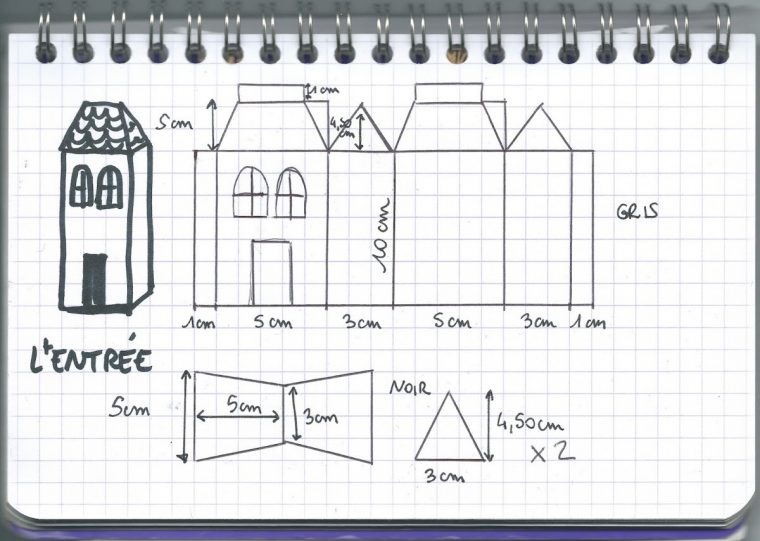 1cm
5cm
4,50 cm
10 cm
GRIS
1cm 5cm 3cm 5cm 3cm 1cm
L'ENTRÉE
NOIR
5cm
5cm
3cm
4,50cm
x2
3cm